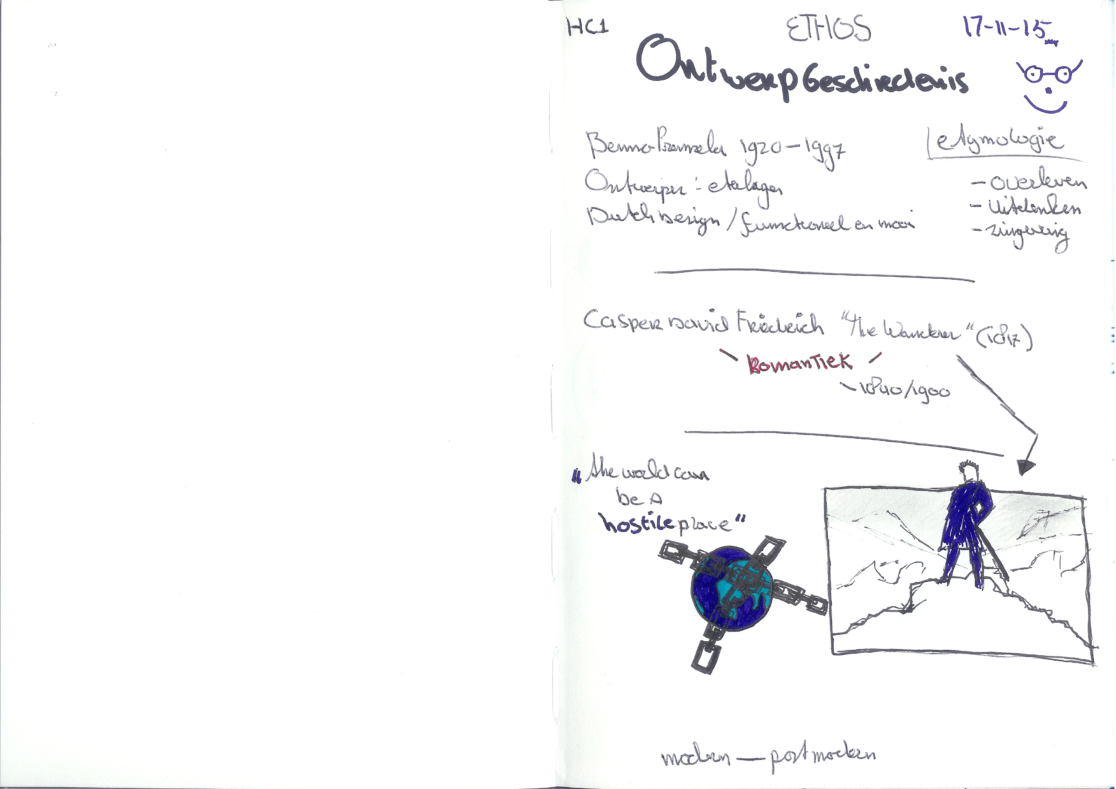 HC1
ETHOS
17-11-15
OntwerpGeschiedenis
Benno Premsela 1920-1997
Ontwerper: etalages
Dutch Design / functioneel en mooi
etymologie
- overleven
- uitdenken
- zingeving
Casper David Friedrich "the Wanderer" (1817)
Romantiek
1840/1900
"the world can
be a
hostile place"
modern — postmodern